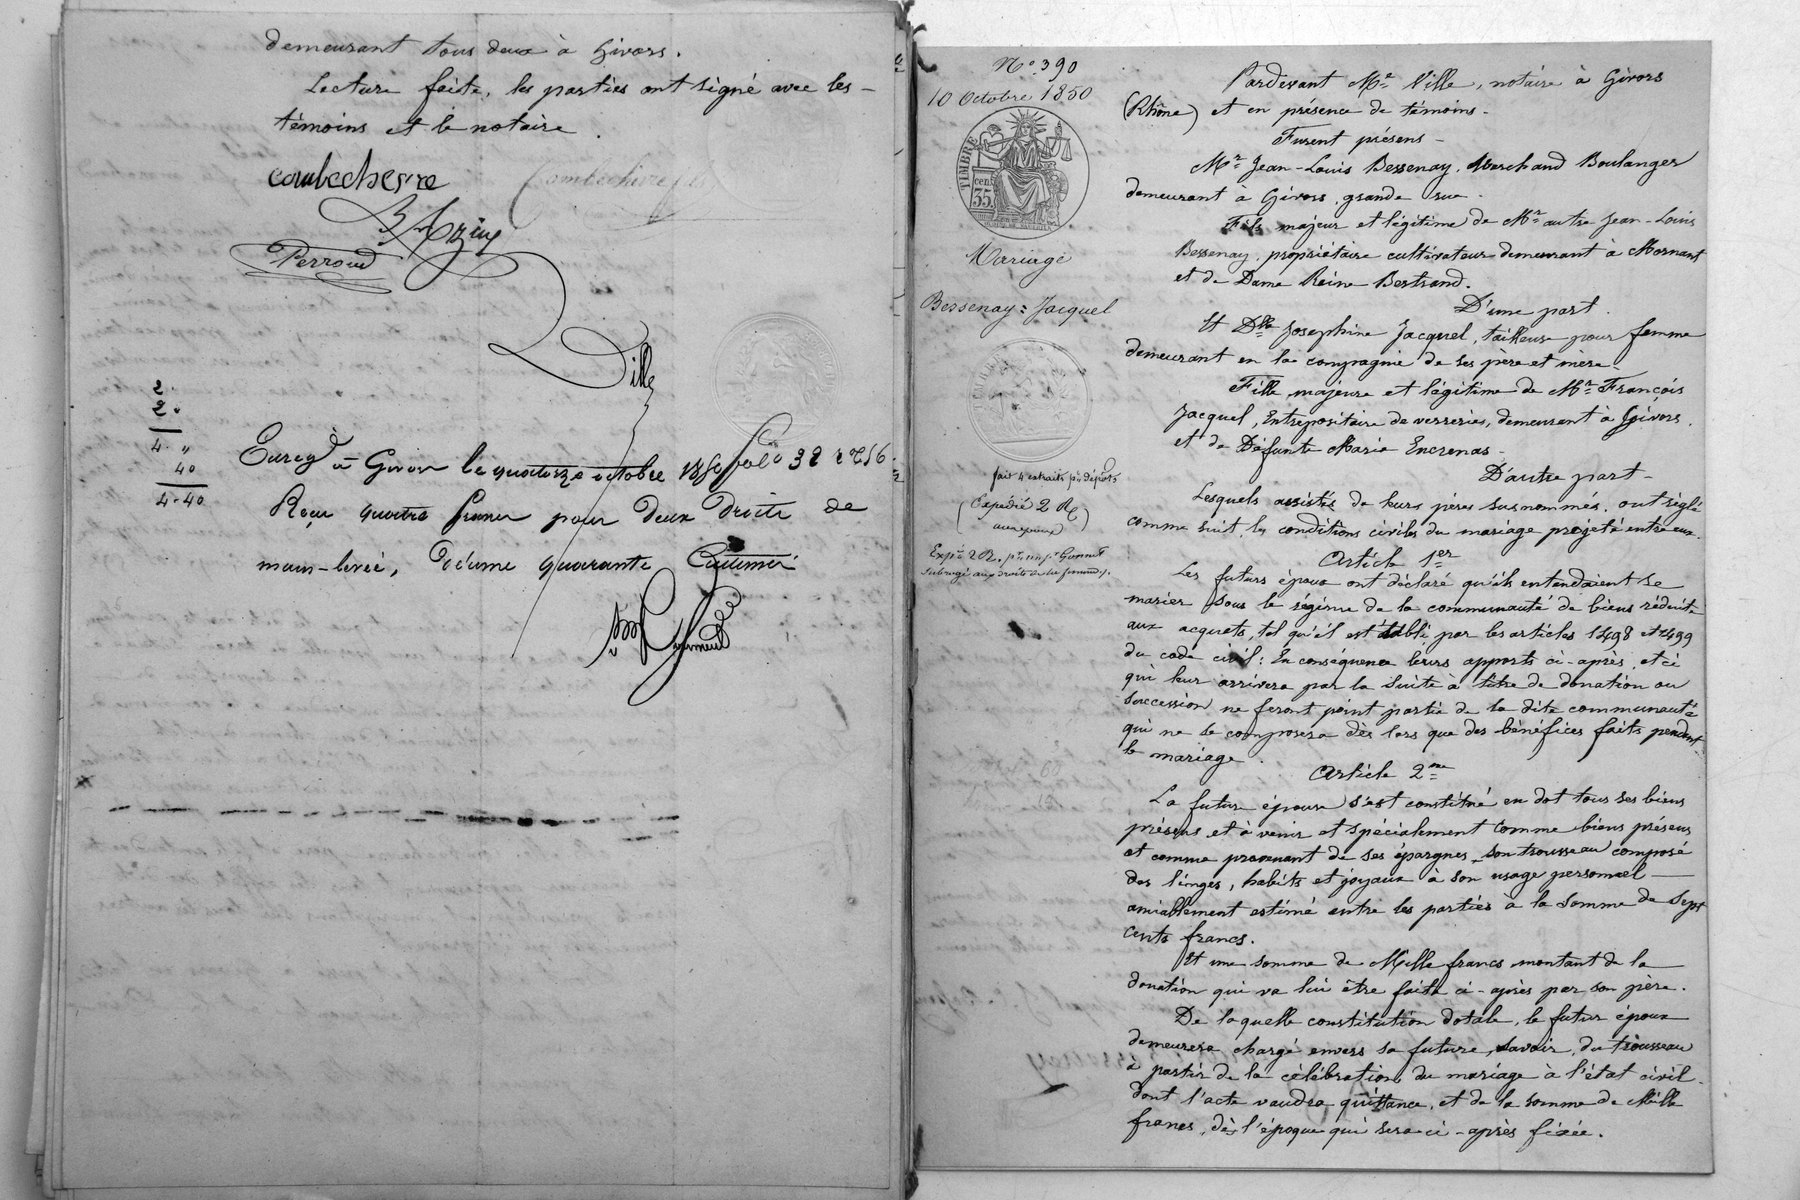 demeurant tous deux à Givors.
Lecture faite, les parties ont signé avec les
témoins et le notaire.
Combecheyre
Combecheyre fils
Perroud
Ville
2.
2.
4. "
40
4-40
Enreg à Givors le quatorze octobre 1850 folio 32
Reçu quatre francs pour deux droits de
main-levée, décime quarante centimes
N° 390
10 Octobre 1850
TIMBRE
35 cen.
Mariage
Bessenay = Jacquel
fait 4 extraits pr dépôts
(Expédié 2 R
aux époux)
Expé 2 R. pr
subrogé aux droits de la femme
Pardevant Me Ville, notaire à Givors
(Rhône) et en présence de témoins -
Furent présens -
Mr Jean-Louis Bessenay, Marchand Boulanger
demeurant à Givors, grande rue -
Fils majeur et légitime de Mr autre Jean-Louis
Bessenay, propriétaire cultivateur demeurant à Mornant
et de Dame Reine Bertrand.
D'une part.
Et Dlle Josephine Jacquel, tailleuse pour femme
demeurant en la compagnie de ses père et mère -
Fille majeure et légitime de Mr François
Jacquel, Entrepositaire de verreries, demeurant à Givors,
et de Défunte Marie Encrenas -
D'autre part -
Lesquels assistés de leurs pères susnommés, ont réglé
comme suit les conditions civiles du mariage projeté entre eux.
Article 1er
Les futurs époux ont déclaré qu'ils entendaient se
marier sous le régime de la communauté de biens réduite
aux acquets, tel qu'il est établi par les articles 1498 et 1499
du code civil : En conséquence leurs apports ci-après, et ce
qui leur arrivera par la suite à titre de donation ou
succession ne feront point partie de la dite communauté
qui ne se composera dès lors que des bénéfices faits pendant
le mariage.
Article 2me
La future épouse s'est constitué en dot tous ses biens
présens et à venir et spécialement comme biens présens
et comme provenant de ses épargnes, son trousseau composé
des linges, habits et joyaux à son usage personnel -
amiablement estimé entre les parties à la somme de sept
cents francs.
Et une somme de Mille francs montant de la
donation qui va lui être faite ci-après par son père.
De laquelle constitution dotale, le futur époux
demeurera chargé envers sa future, savoir, du trousseau
à partir de la célébration du mariage à l'état civil
dont l'acte vaudra quittance, et de la somme de Mille
francs, dès l'époque qui sera ci-après fixée.